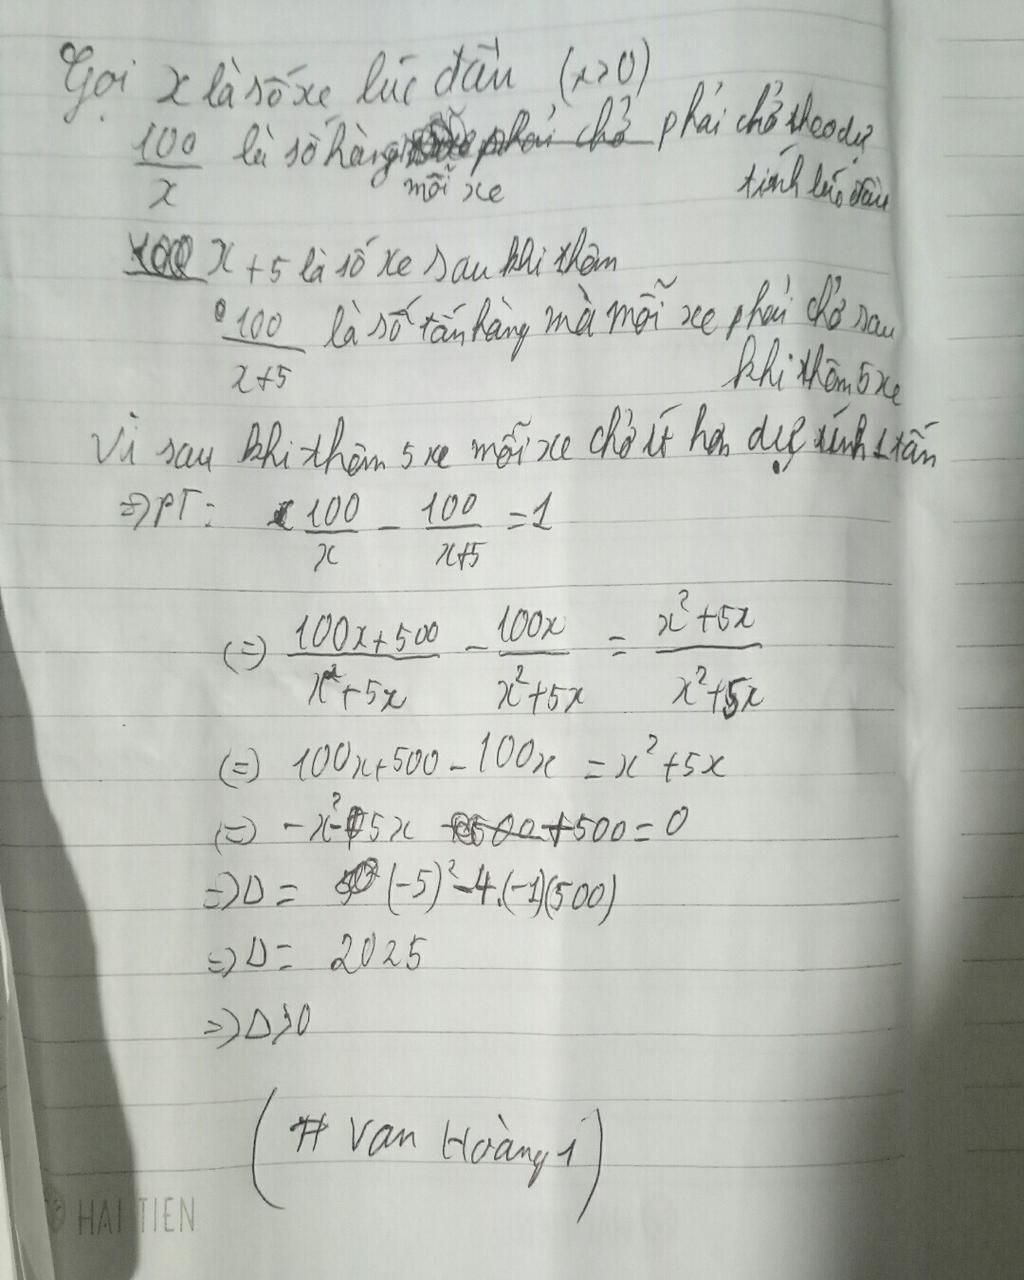 Gọi x là số xe lúc đầu (x>0)
100/x là số hàng mỗi xe phải chở phải chở theo dự tính lúc đầu
x+5 là số xe sau khi thêm
100/(x+5) là số tấn hàng mà mỗi xe phải chở sau khi thêm 5 xe
Vì sau khi thêm 5 xe mỗi xe chở ít hơn dự tính 1 tấn
=> PT: 100/x - 100/(x+5) = 1
(=) (100x+500)/(x²+5x) - 100x/(x²+5x) = (x²+5x)/(x²+5x)
(=) 100x+500-100x = x²+5x
(=) -x²-5x+500=0
=> Δ = (-5)²-4.(-1)(500)
=> Δ = 2025
=> Δ>0
(# Van Hoàng1)
HAI TIEN